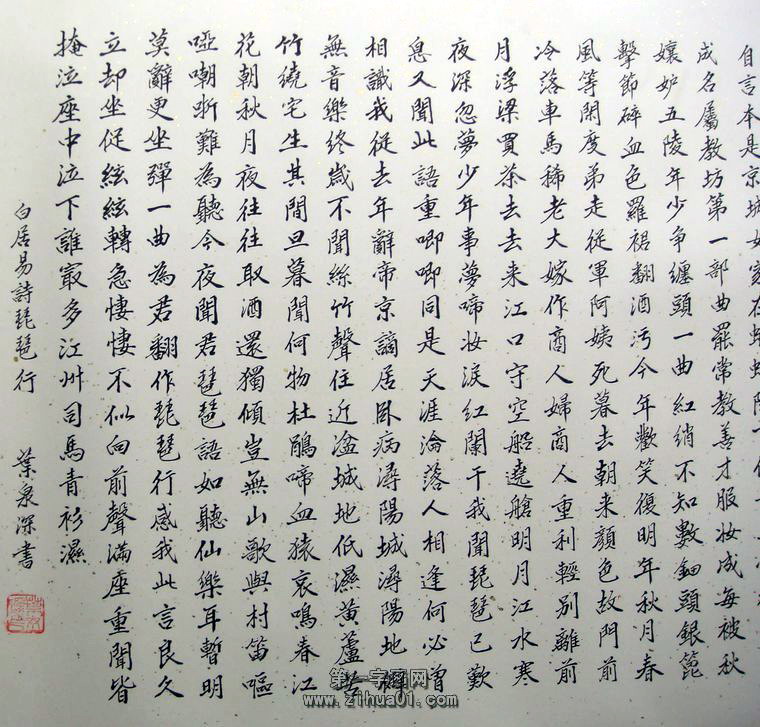 自言本是京城女家在
成名屬教坊第一部曲罷常教善才服妝成每被秋
孃妒五陵年少爭纏頭一曲紅綃不知數鈿頭銀篦
擊節碎血色羅裙翻酒污今年歡笑復明年秋月春
風等閑度弟走從軍阿姨死暮去朝来顏色故門前
冷落車馬稀老大嫁作商人婦商人重利輕別離前
月浮梁買茶去去来江口守空船遶艙明月江水寒
夜深忽夢少年事夢啼妝淚紅闌干我聞琵琶已歎
息又聞此語重唧唧同是天涯淪落人相逢何必曾
相識我從去年辭帝京謫居卧病潯陽城潯陽地僻
無音樂終歲不聞絲竹聲住近湓城地低濕黃蘆苦
竹繞宅生其間旦暮聞何物杜鵑啼血猿哀鳴春江
花朝秋月夜往往取酒還獨傾豈無山歌與村笛嘔
啞嘲哳難為聽今夜聞君琵琶語如聽仙樂耳暫明
莫辭更坐彈一曲為君翻作琵琶行感我此言良久
立却坐促絃絃轉急悽悽不似向前聲滿座重聞皆
掩泣座中泣下誰最多江州司馬青衫濕
白居易詩琵琶行 葉泉深書
第一字画网
www.zihua01.com